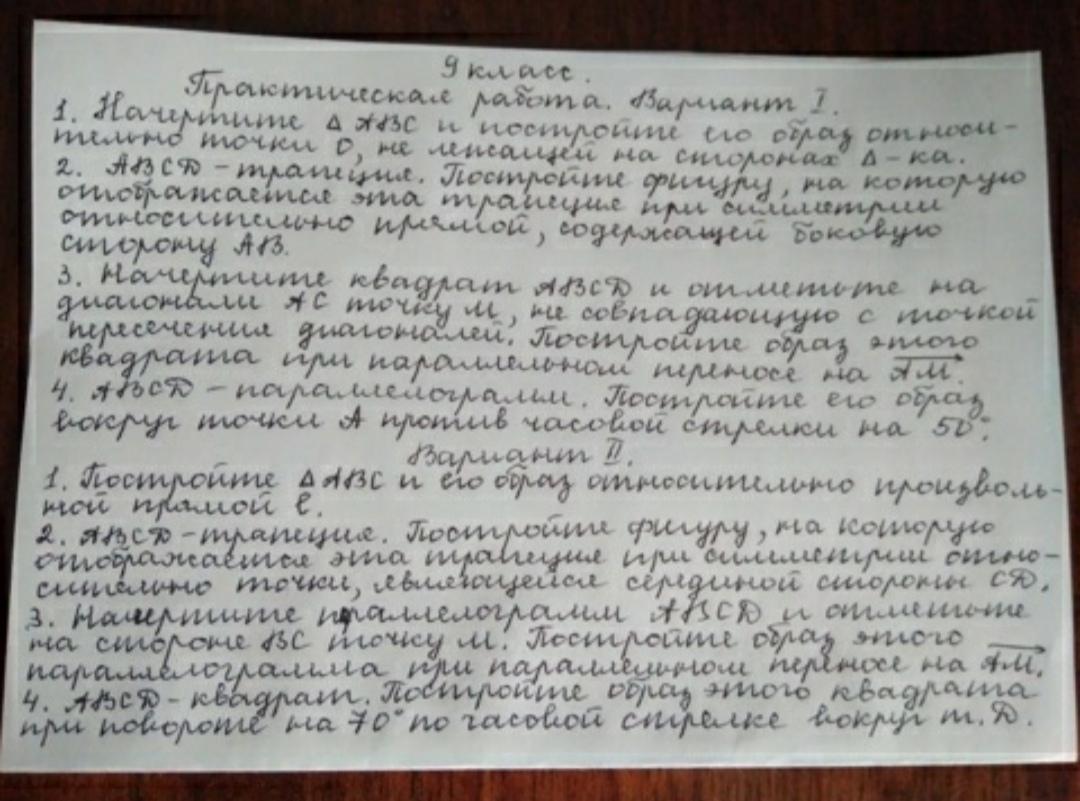 9 класс.
Практическая работа. Вариант I.
1. Начертите Δ ABC и постройте его образ относи-
тельно точки O, не лежащей на сторонах Δ-ка.
2. ABCD - трапеция. Постройте фигуру, на которую
отображается эта трапеция при симметрии
относительно прямой, содержащей боковую
сторону AB.
3. Начертите квадрат ABCD и отметьте на
диагонали AC точку M, не совпадающую с точкой
пересечения диагоналей. Постройте образ этого
квадрата при параллельном переносе на AM.
4. ABCD - параллелограмм. Постройте его образ
вокруг точки A против часовой стрелки на 50°.
Вариант II.
1. Постройте Δ ABC и его образ относительно произволь-
ной прямой ℓ.
2. ABCD - трапеция. Постройте фигуру, на которую
отображается эта трапеция при симметрии отно-
сительно точки, являющейся серединой стороны CD.
3. Начертите праллелограмм ABCD и отметьте
на стороне BC точку M. Постройте образ этого
параллелограмма при параллельном переносе на AM.
4. ABCD - квадрат. Постройте образ этого квадрата
при повороте на 70° по часовой стрелке вокруг т. D.